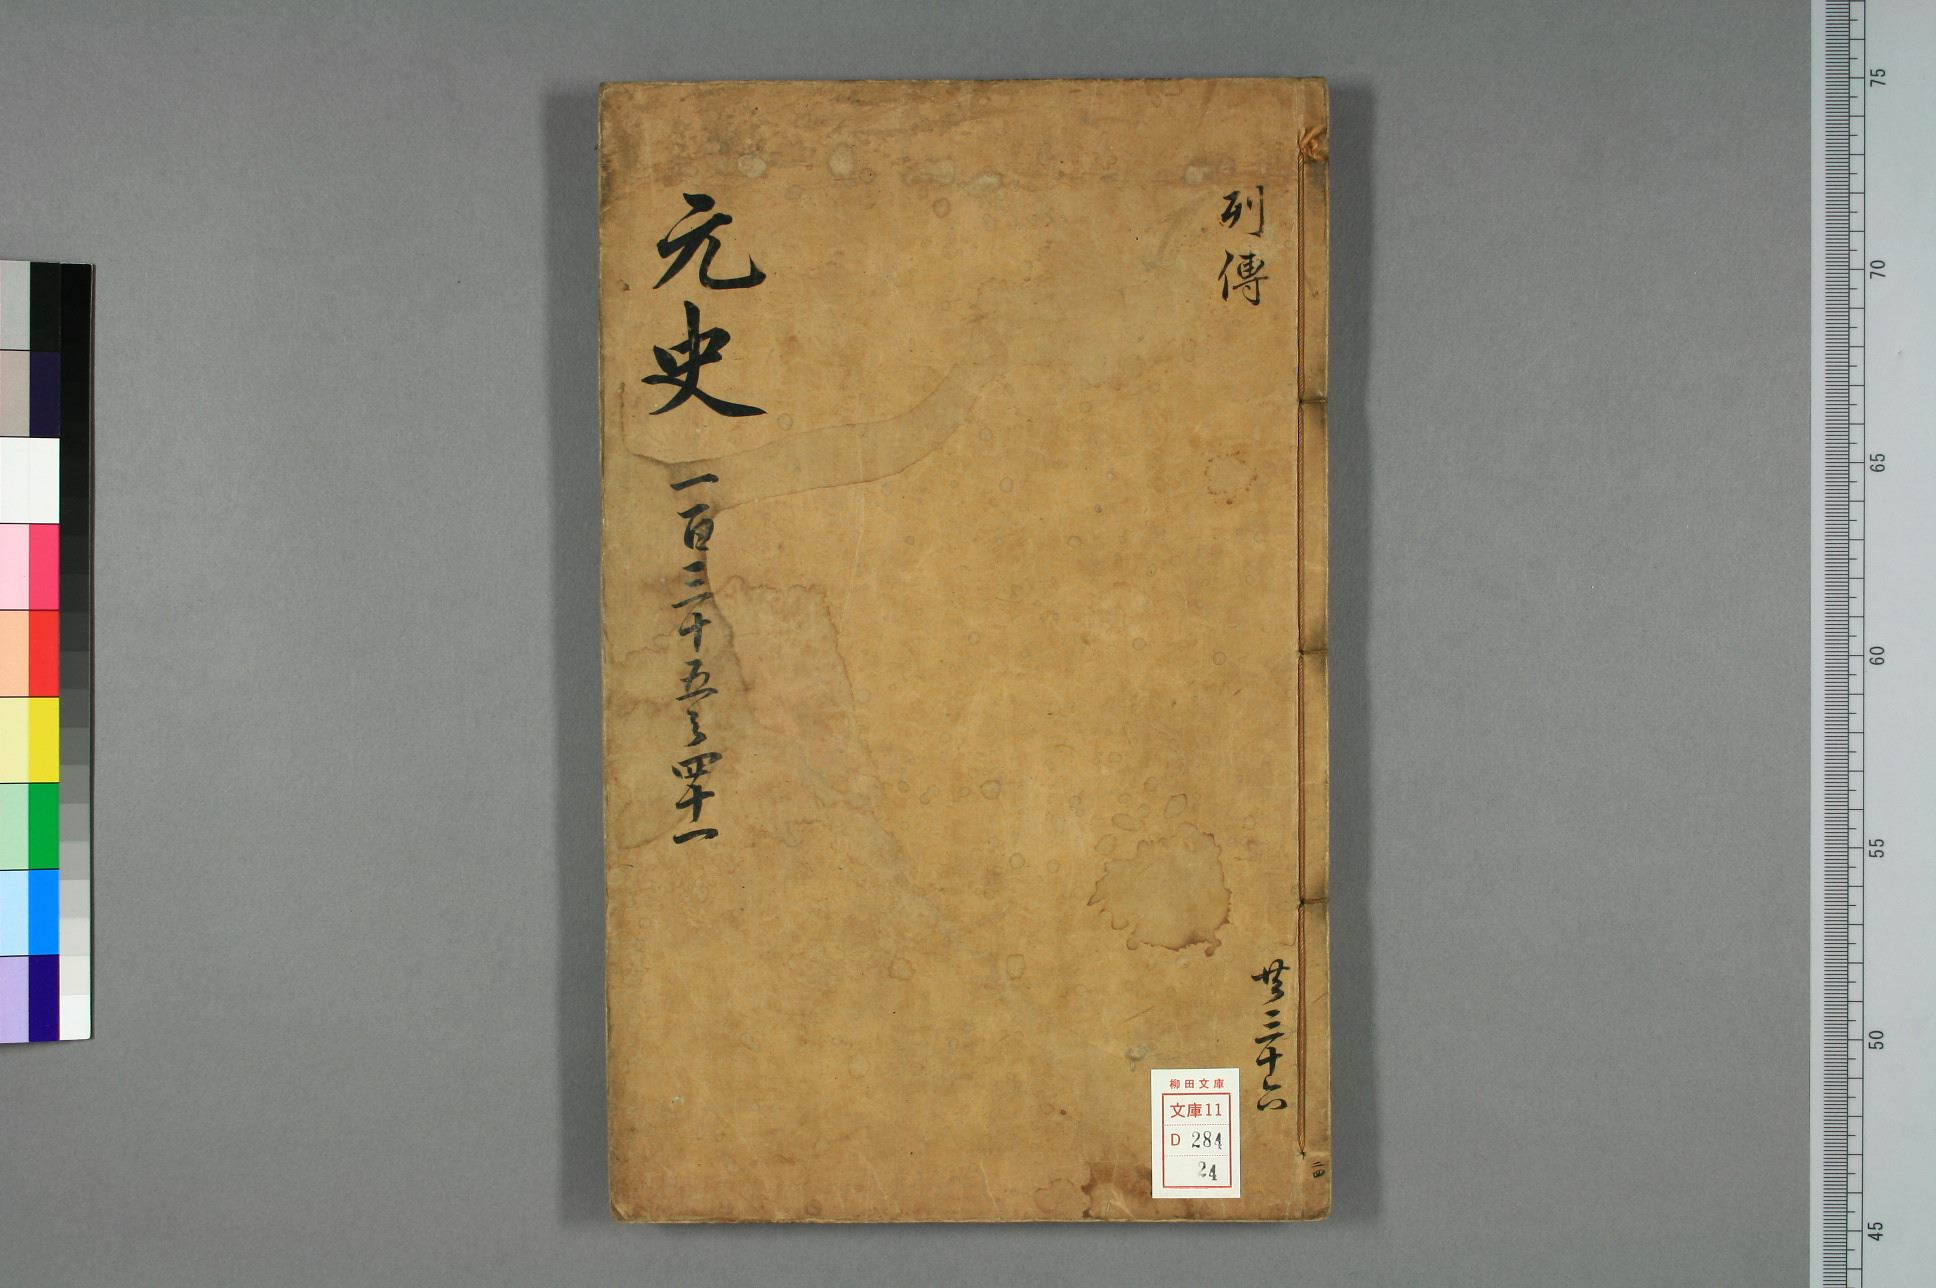 列傳
元史 一百三十五之四十一
共三十六
柳田文庫
文庫11
D 284
24
二四
75
70
65
60
55
50
45